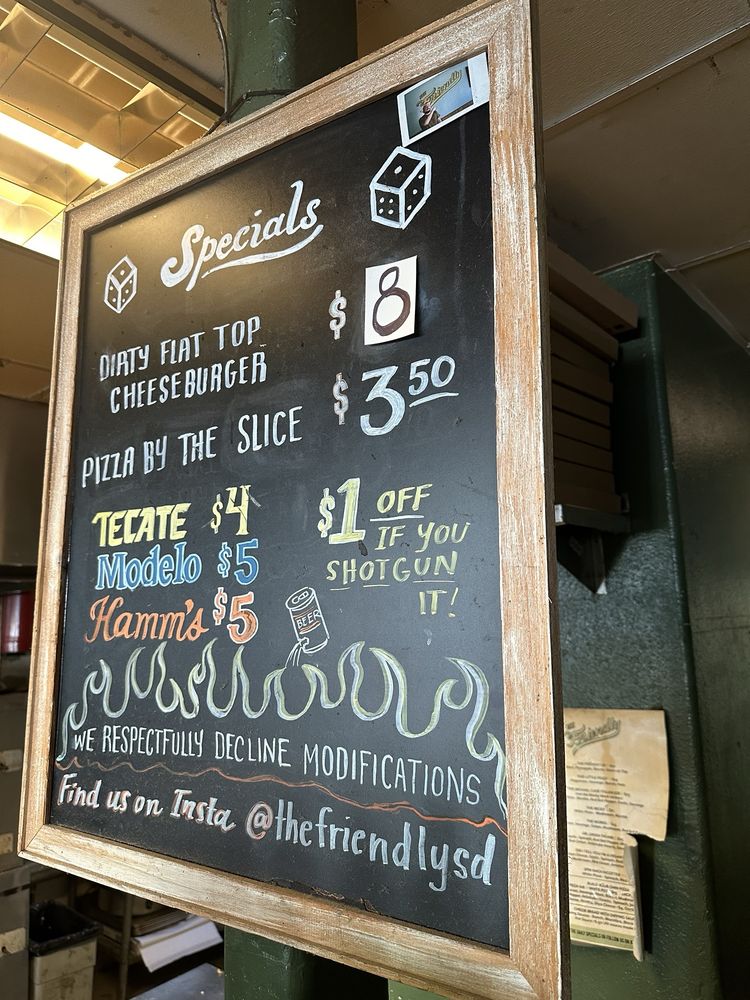 Specials
DIRTY FLAT TOP
CHEESEBURGER
$8
PIZZA BY THE SLICE
$3 50
TECATE $4
Modelo $5
Hamm's $5
$1 OFF
IF YOU
SHOTGUN
IT!
BEER
WE RESPECTFULLY DECLINE MODIFICATIONS
Find us on Insta @thefriendlysd
Friendly